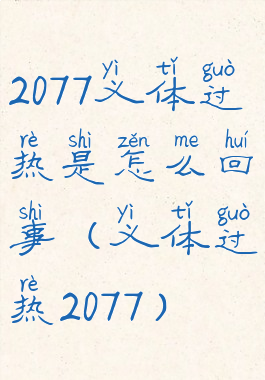 yì tǐ guò
2077义体过
rè shì zěn me huí
热是怎么回
shì yì tǐ guò
事（义体过
rè
热2077）